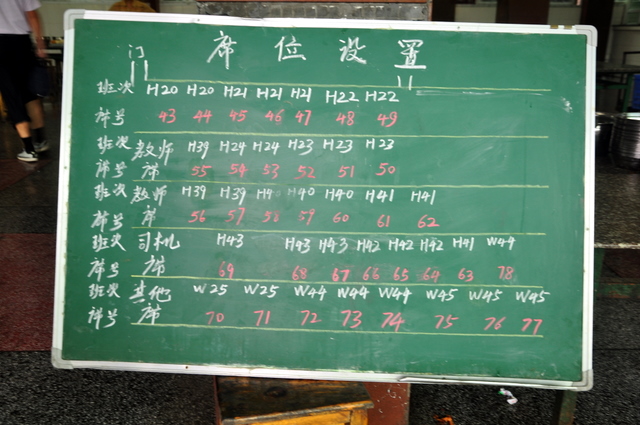 门 席位设置
班次 H20 H20 H21 H21 H21 H22 H22
席号 43 44 45 46 47 48 49
班次 教师 H39 H24 H24 H23 H23 H23
席号 席 55 54 53 52 51 50
班次 教师 H39 H39 H40 H40 H40 H41 H41
席号 席 56 57 58 59 60 61 62
班次 司机 H43 H43 H43 H42 H42 H42 H41 W44
席号 席 69 68 67 66 65 64 63 78
班次 其他 W25 W25 W44 W44 W44 W45 W45 W45
席号 席 70 71 72 73 74 75 76 77